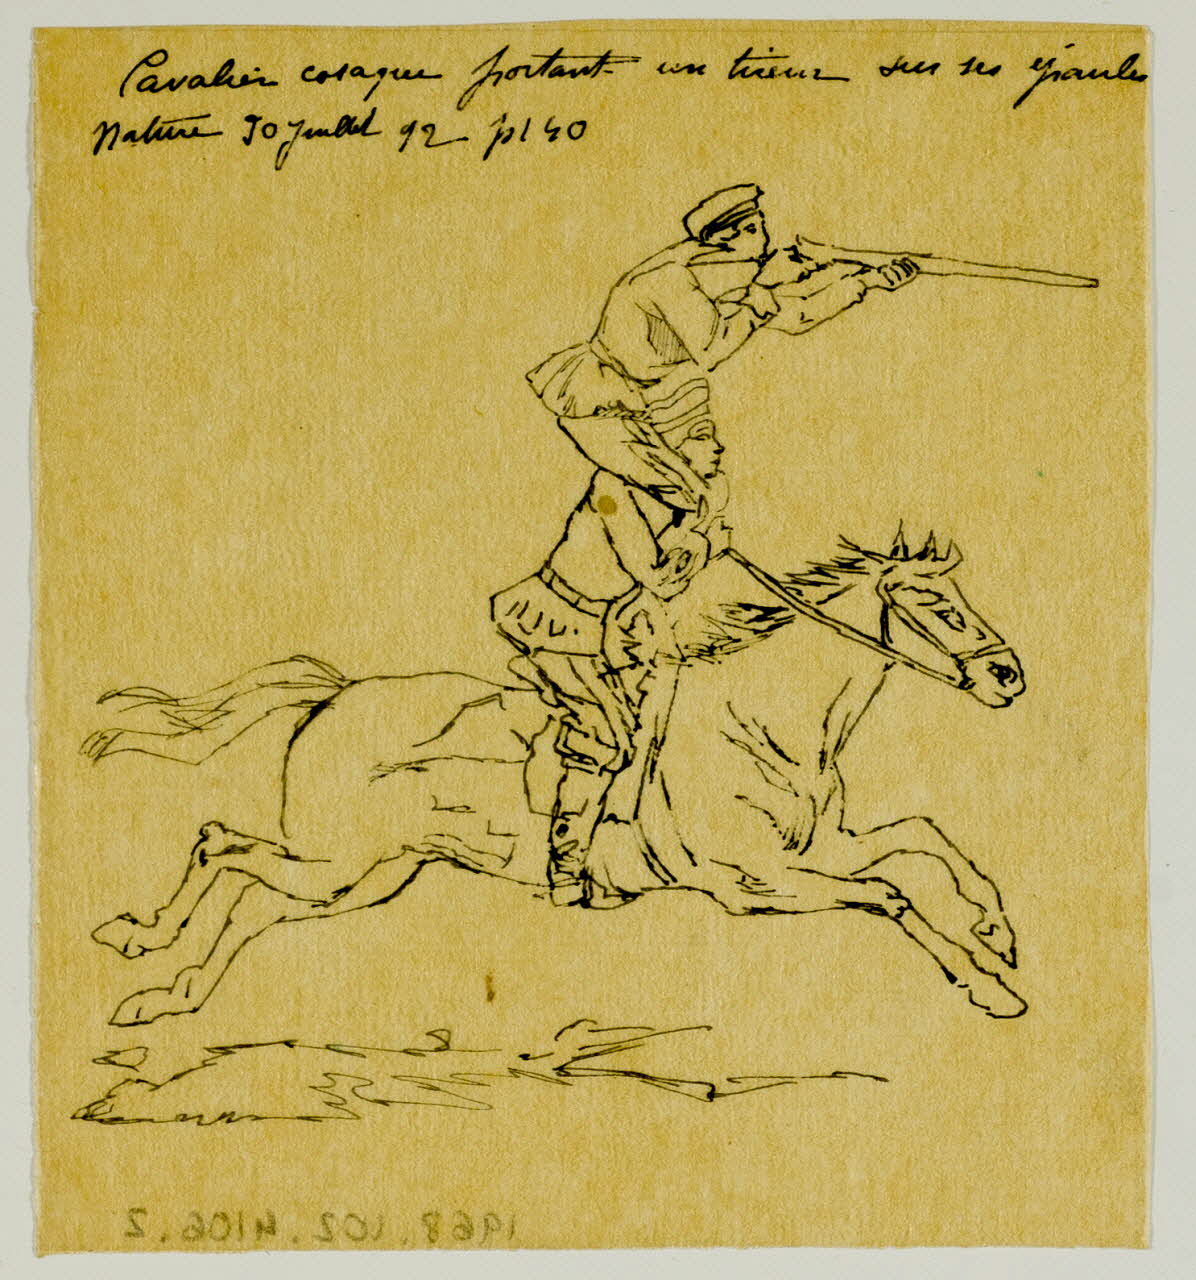 Cavalier cosaque portant un tireur sur ses épaules
Nature 30 juillet 92 pl 40
1968.102.4106.2